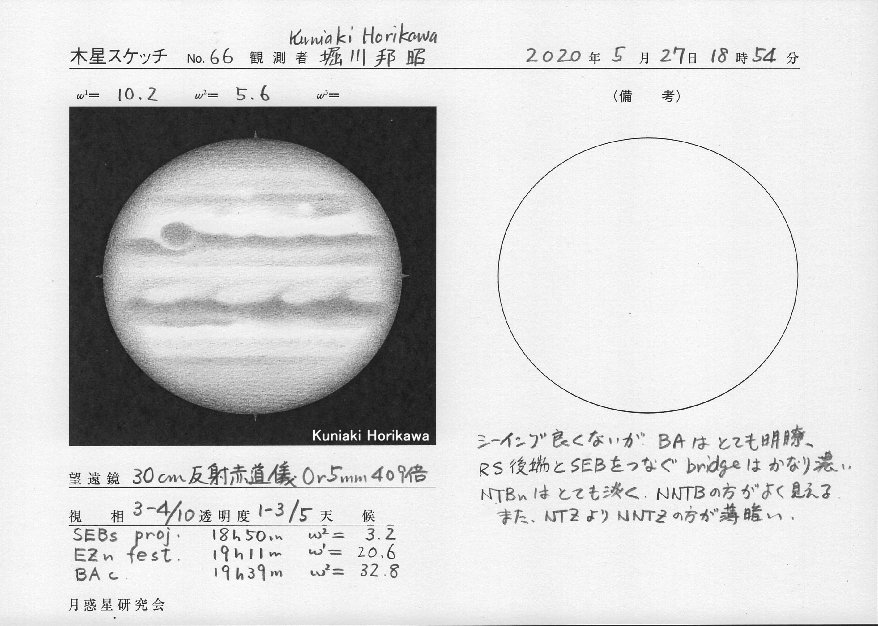 Kuniaki Horikawa
木星スケッチ No.66 観測者 堀川邦昭 2020年5月27日18時54分
ω¹= 10.2 ω²= 5.6 ω³=
(備 考)
Kuniaki Horikawa
望遠鏡 30cm反射赤道儀 Or5mm 409倍
視 相 3-4/10 透明度 1-3/5 天 候
SEBs proj. 18h50m ω²= 3.2
EZn fest. 19h11m ω¹= 20.6
BA c. 19h39m ω²= 32.8
月惑星研究会
シーイング良くないが BAはとても明瞭、
RS後端とSEBをつなぐ bridgeはかなり濃い.
NTBnはとても淡く. NNTBの方がよく見える
また、NTZより NNTZの方が薄暗い.